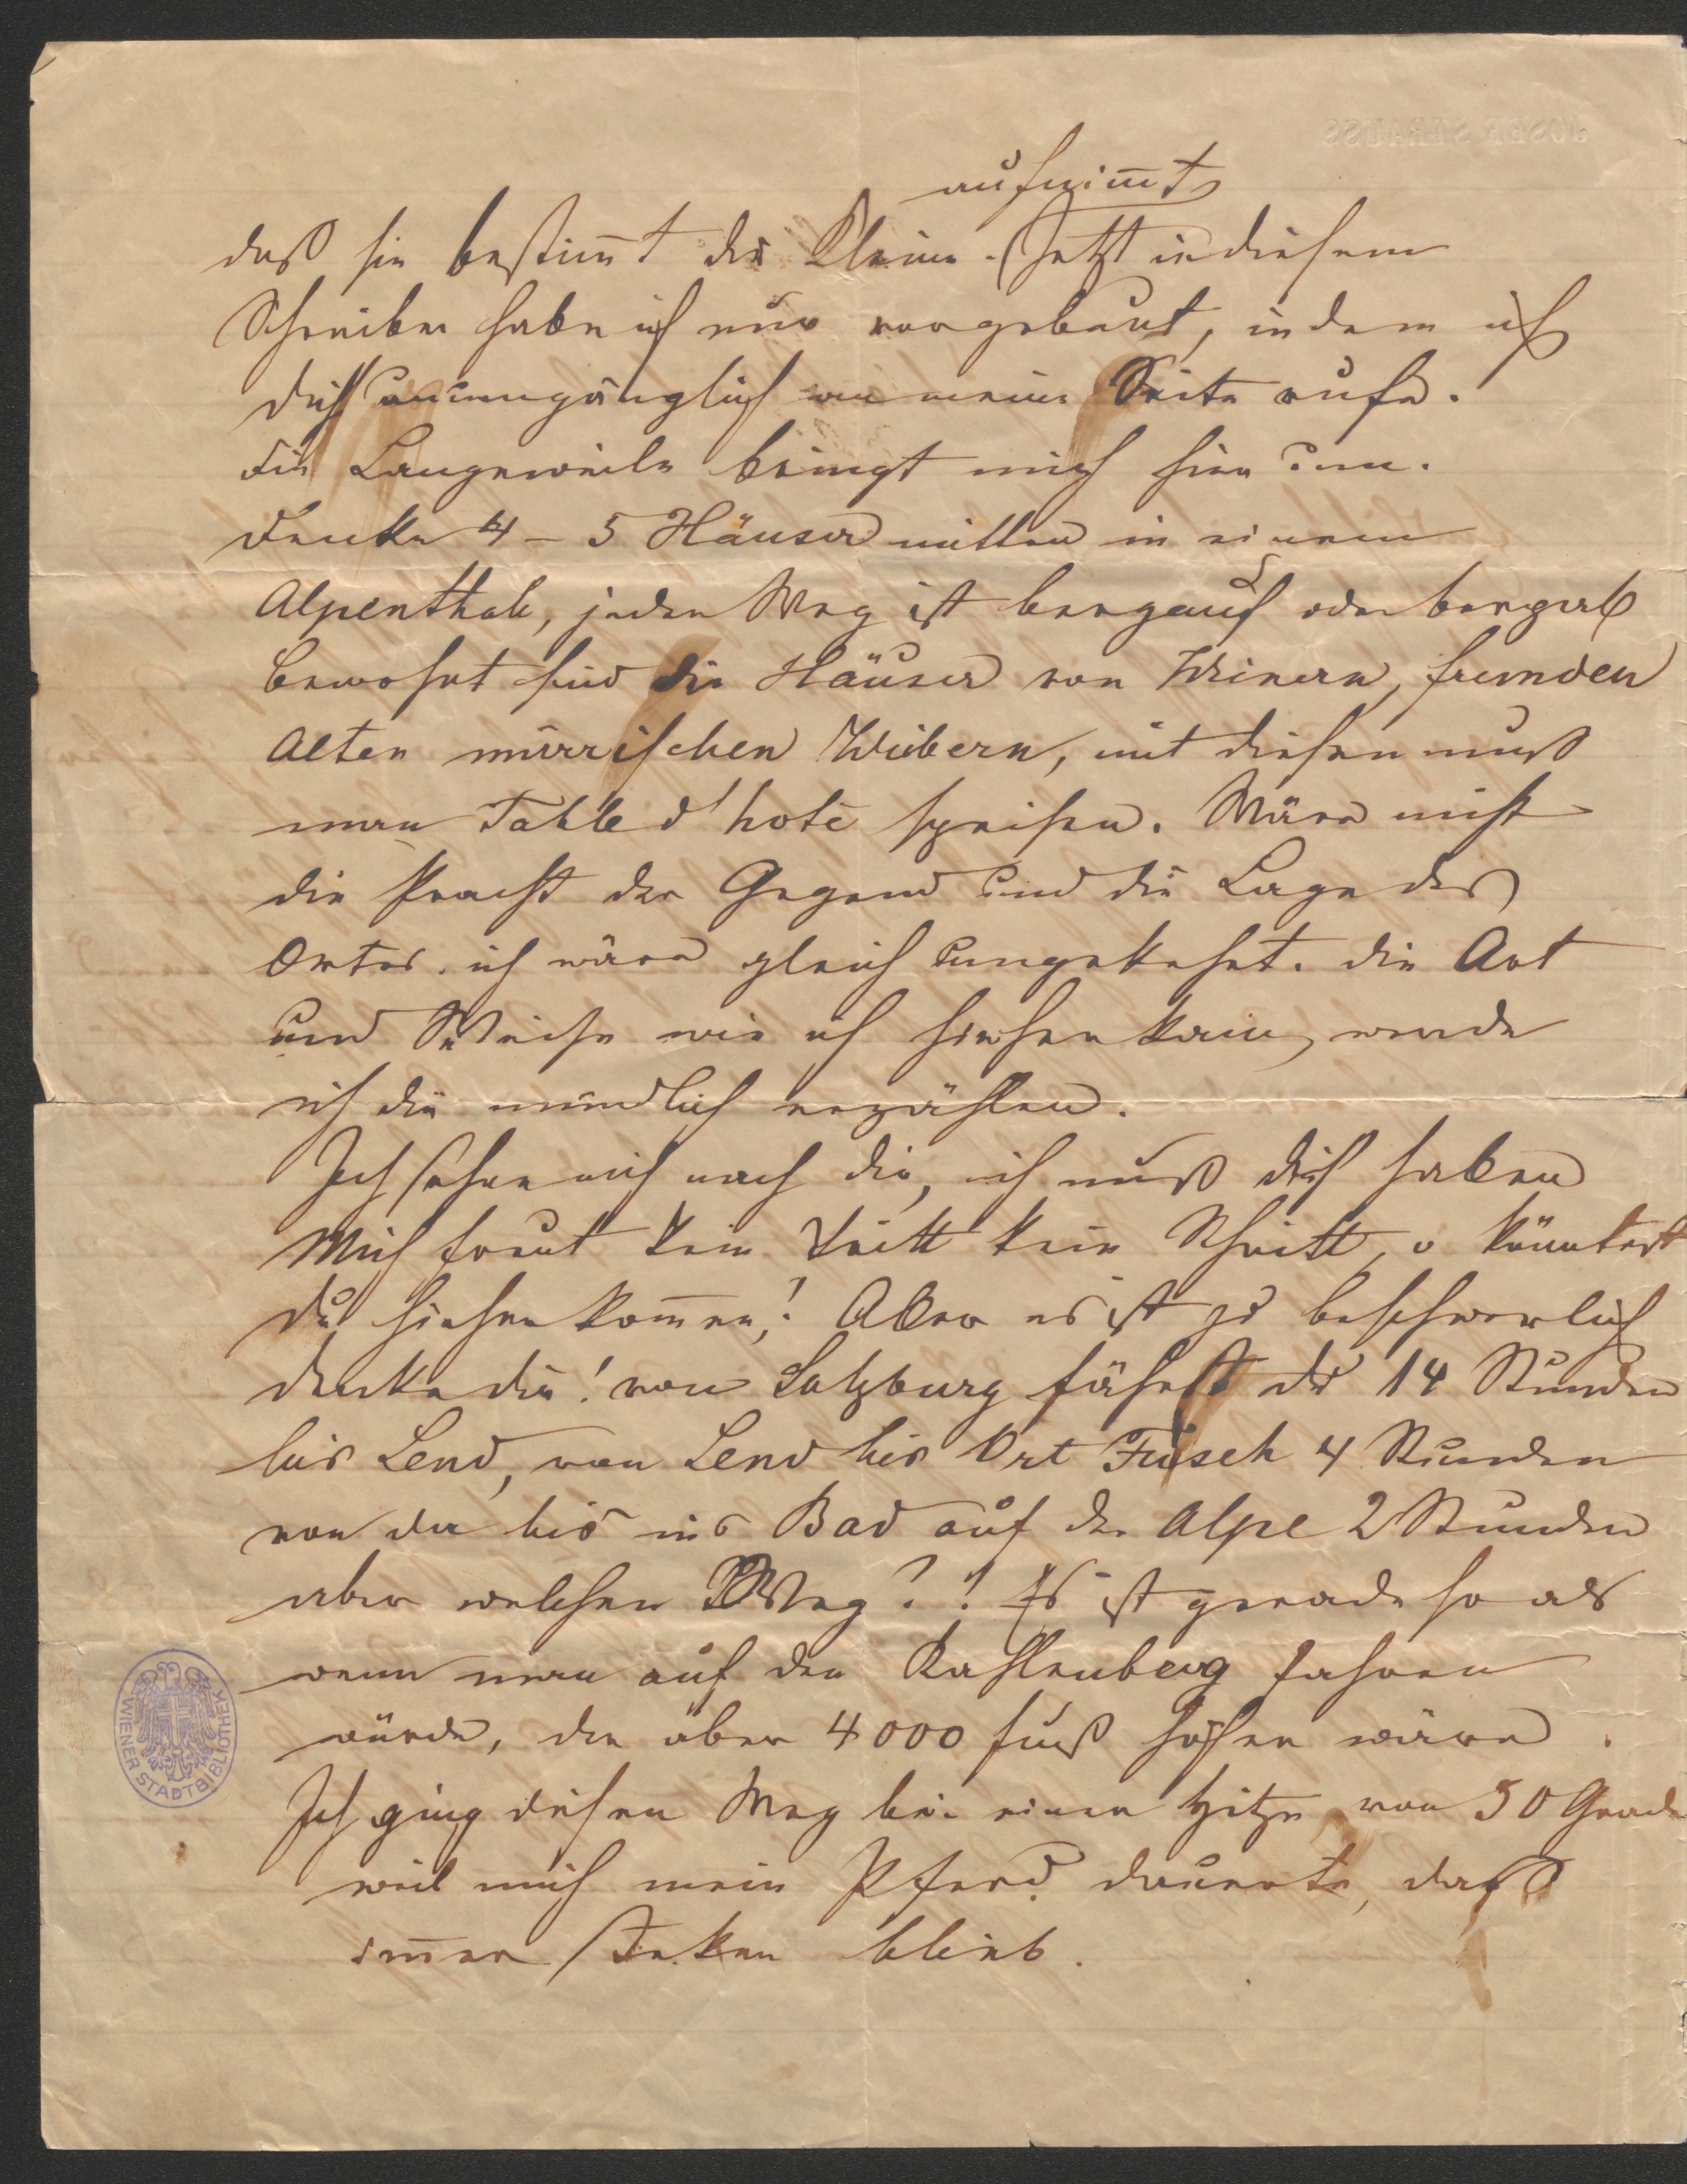 JOSEF STRAUSS
aufnim̅t
daß sie bestim̅t die Kleine. Jetzt in diesem
Schreiben habe ich nur vorgebaut, indem ich
dich unumgänglich an meine Seite rufe.
Die Langeweile bringt mich hier um.
Denke 4 – 5 Häuser mitten in einem
Alpenthale, jeder Weg ist bergauf oder bergab
Bewohnt sind die Häuser von Wienern, fremden
Alten mürrischen Weibern, mit diesen muß
man Table d'hote speisen. Wäre nicht
die Pracht der Gegend und die Lage des
Ortes. ich wäre gleich umgekehrt. die Art
und Weise wie ich hieher kam, werde
ich dir mündlich erzählen.
Ich sehne mich nach dir, ich muß dich haben
Mich freut kein Tritt kein Schritt, o könntest
du hieher kom̅en! Aber es ist zu beschwerlich
denke dir! von Salzburg fährst du 14 Stunden
bis Lend, von Lend bis Ort Fusch 4 Stunden
von da bis ins Bad auf der Alpe 2 Stunden
aber welcher Weg?! Es ist gerade so als
wenn man auf den Kahlenberg fahren
würde, der aber 4000 Fuß höher wäre.
Ich ging diesen Weg bei einer Hitze von 30 Grade
weil mich mein Pferd dauerte, daß
im̅er steken blieb.
WIENER STADTBIBLIOTHEK